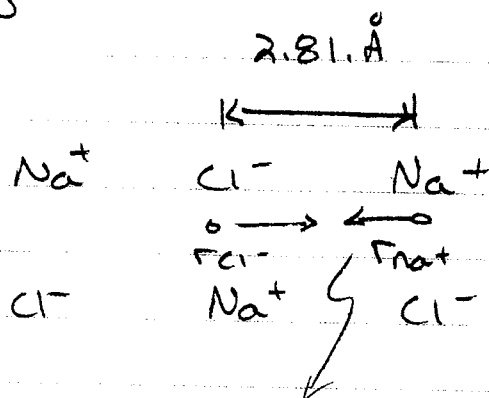 2.81.Å
Na⁺ Cl⁻ Na⁺
rCl⁻ rna⁺
Cl⁻ Na⁺ Cl⁻